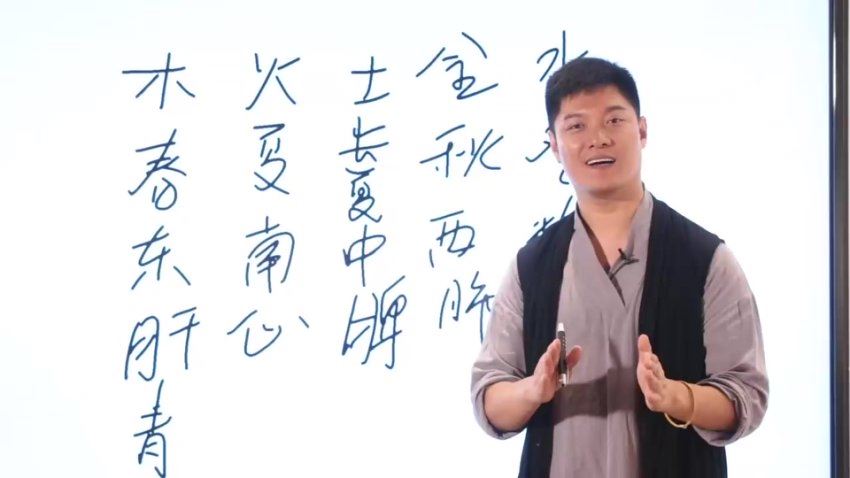 木 火 土 金 水
春 夏 长夏 秋
东 南 中 西
肝 心 脾 肺
青